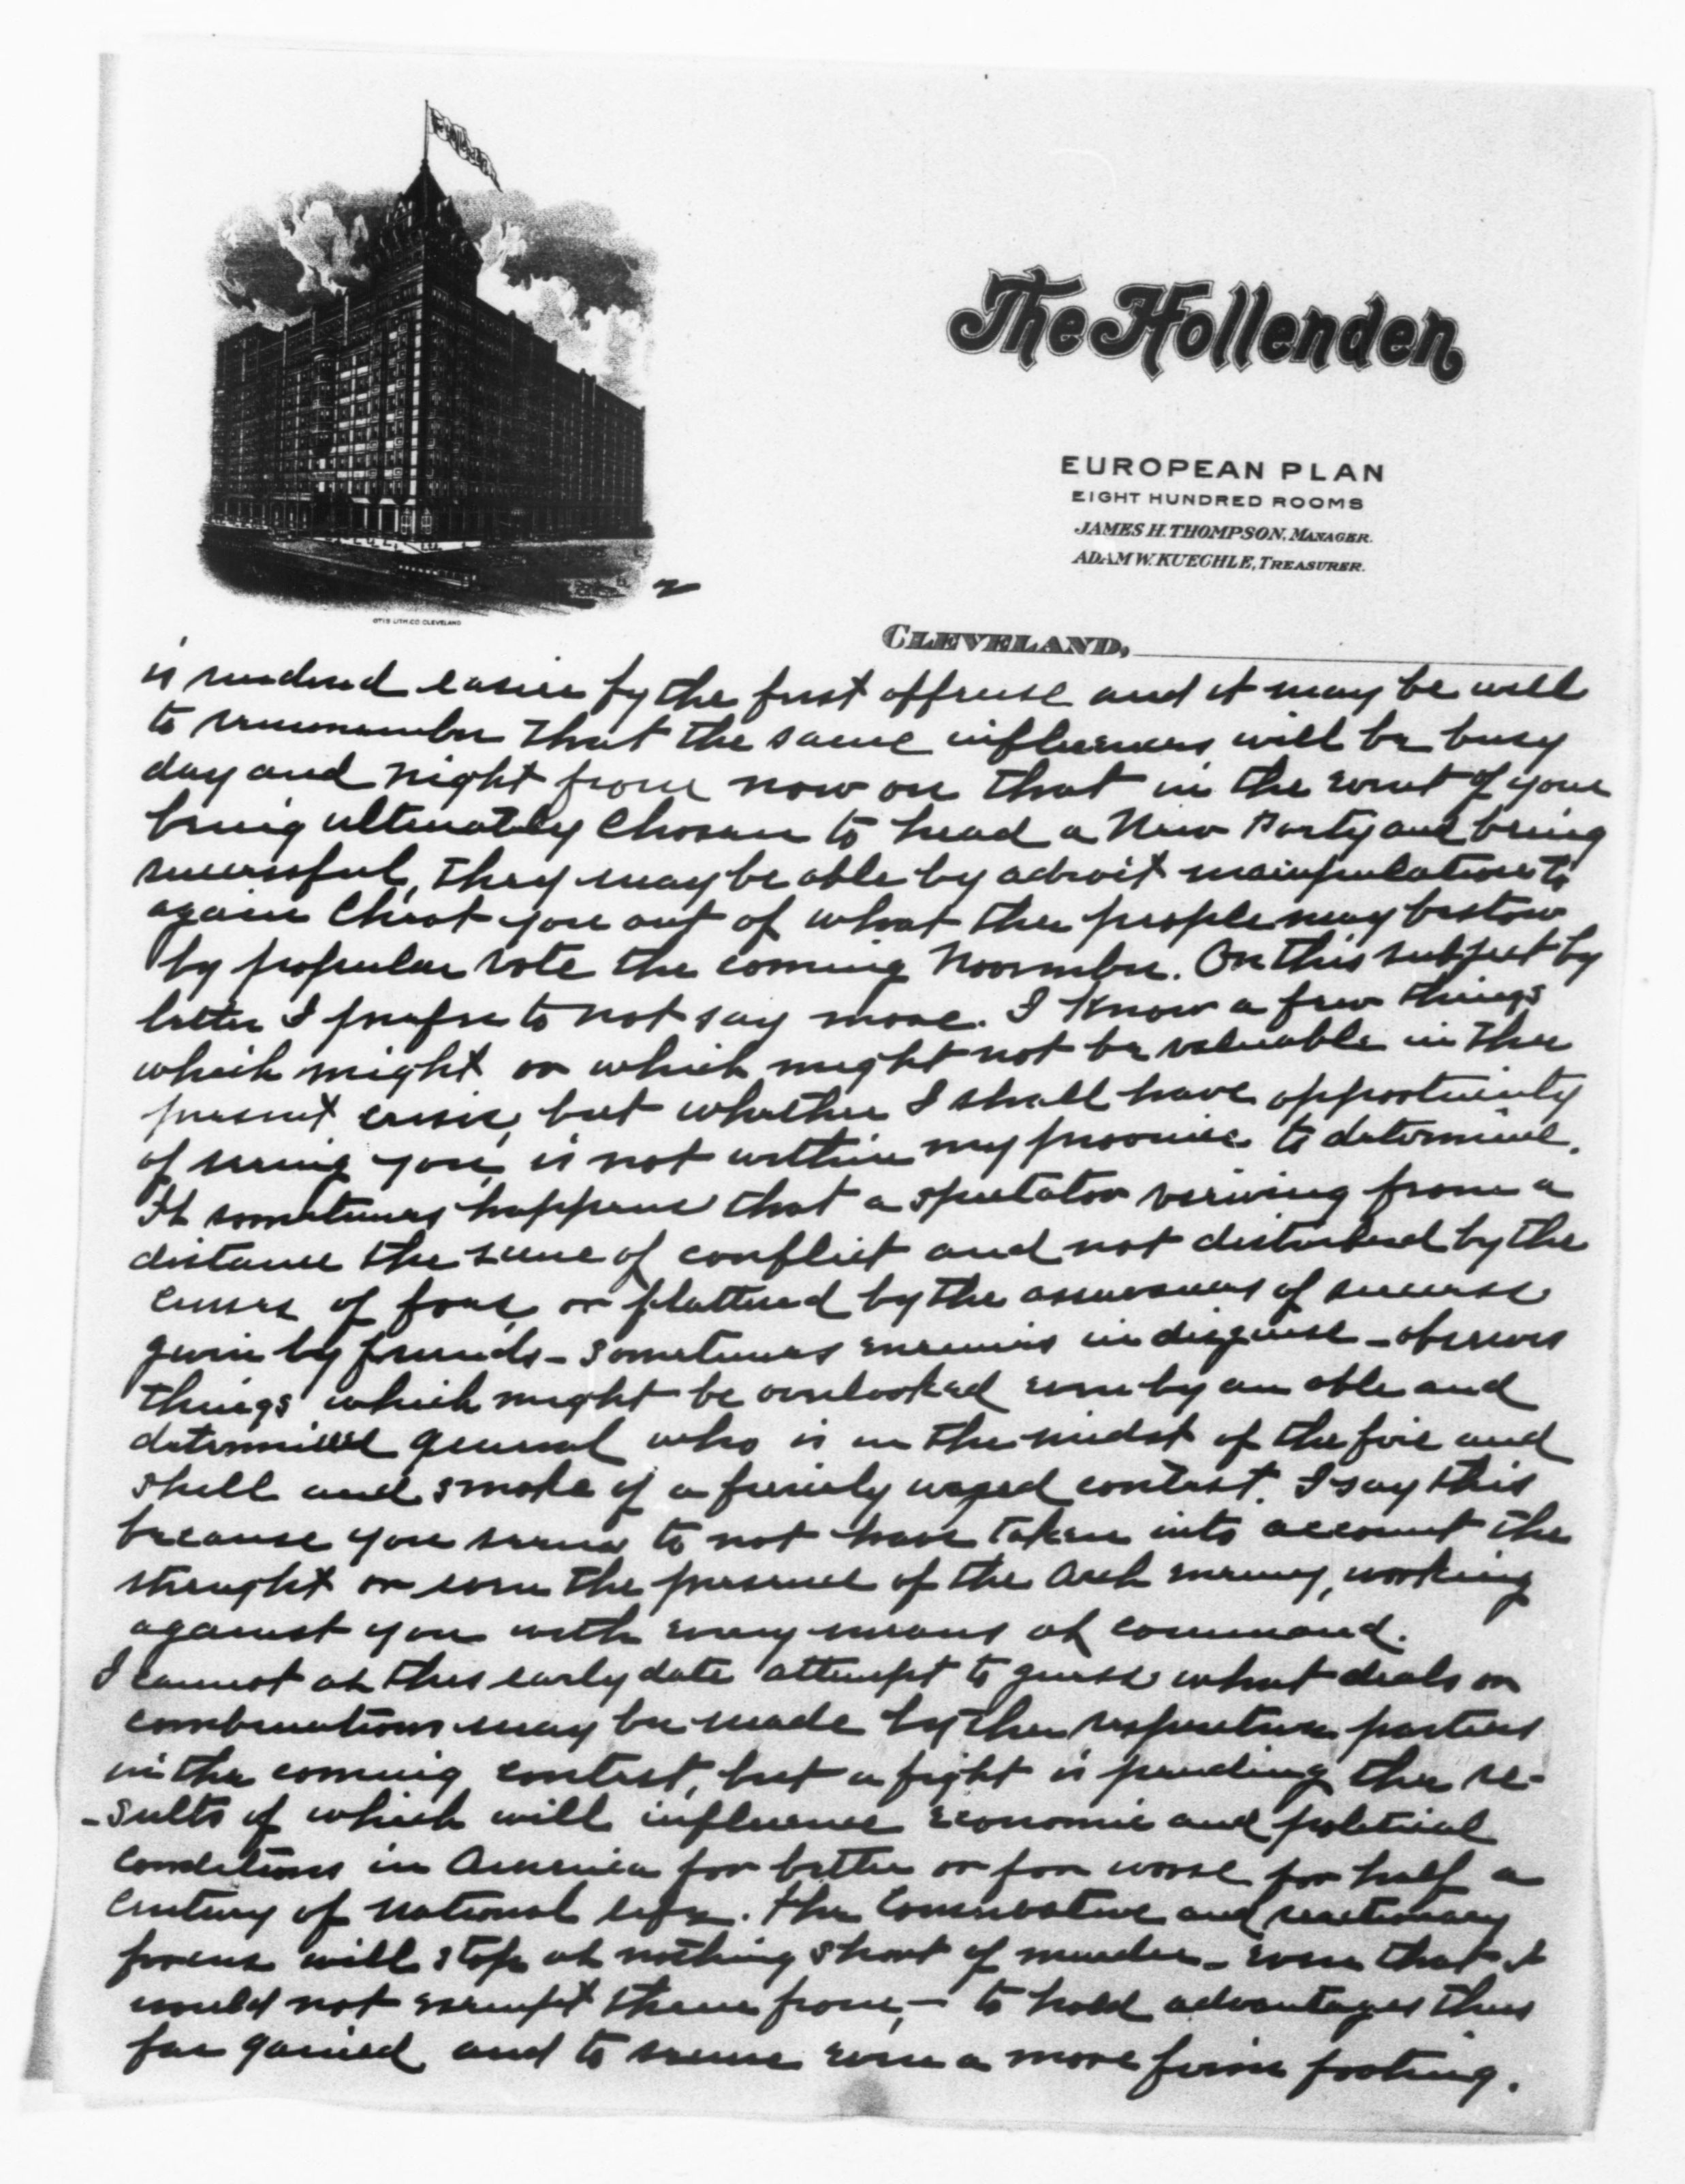 The Hollenden
EUROPEAN PLAN
EIGHT HUNDRED ROOMS
JAMES H. THOMPSON, MANAGER.
ADAM W. KUECHLE, TREASURER.
OTIS LITH. CO. CLEVELAND
2
CLEVELAND,
is rendered easier by the first offense and it may be well
to rememember that the same influences will be busy
day and night from now on that in the event of your
being ultimately chosen to head a New Party and being
successful, they may be able by adroit mainpulations to
again cheat you out of what the people may bestow
by popular vote the coming November. On this subject by
letter I prefer to not say more. I know a few things
which might or which might not be valuable in the
present crisis, but whether I shall have opportunity
of seeing you, is not within my province to determine.
It sometimes happens that a spectator viewing from a
distance the scene of conflict and not disturbed by the
curses of foes, or flattered by the assurances of success
given by friends - sometimes enemies in disguise - observes
things which might be overlooked even by an able and
determined general who is in the midst of the fire and
shell and smoke of a fiercely waged contest. I say this
because you seem to not have taken into account the
strenght or even the presence of the Arch enemy, working
against you with every means at command.
I cannot at this early date attempt to guess what deals or
combinations may be made by the respective parties
in the coming contest, but a fight is pending the re-
-sults of which will influence economic and political
conditions in America for better or for worse for half a
century of national life. The Conservative and reactionary
forces will stop at nothing short of murder - even that I
would not exempt them from, - to hold advantages thus
far gained and to secure even a more firm footing.